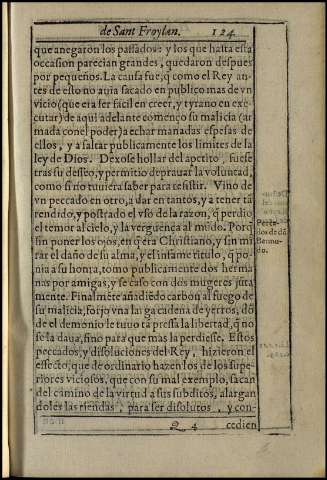 de Sant Froylan. 124
que anegaron los passados: y los que hasta esta
occasion parecian grandes, quedaron despues
por pequeños. La causa fue, q̃ como el Rey an-
tes de esto no auia sacado en publico mas de vn
vicio (que era ser facil en creer, y tyrano en exe-
cutar) de aqui adelante començo su malicia (ar
mada conel poder) a echar manadas espesas de
ellos, y a saltar publicamente los limites de la
ley de Dios. Dexose hollar del apetito, fuese
tras su desseo, y permitio deprauar la voluntad,
como si no tuuiera saber para resistir. Vino de
vn peccado en otro, a dar en tantos, y a tener tã
rendido, y postrado el vso de la razon, q̃ perdio
el temor al cielo, y la verguença al mũdo. Porq̃
sin poner los ojos, en q̃ era Christiano, y sin mi
rar el daño de su alma, y el infame titulo, q̃ po-
nia a su honra, tomo publicamente dos herma
nas por amigas, y se caso con dos mugeres junta
mente. Finalmẽte añadiẽdo carbon al fuego de
su malicia, forjo vna larga cadena de yerros, dõ
de el demonio le tuuo tã pressa la libertad, q̃ no
se la daua, sino para que mas la perdiesse. Estos
peccados, y disoluciones del Rey, hizieron el
effecto, que de ordinario hazen los de los supe-
riores viciosos, que con su mal exemplo, sacan
del camino de la virtud a sus subditos, alargan
doles las riendas, para ser disolutos, y con-
Q 4 cedien
Pecca-
dos de dõ
Bermu-
do.